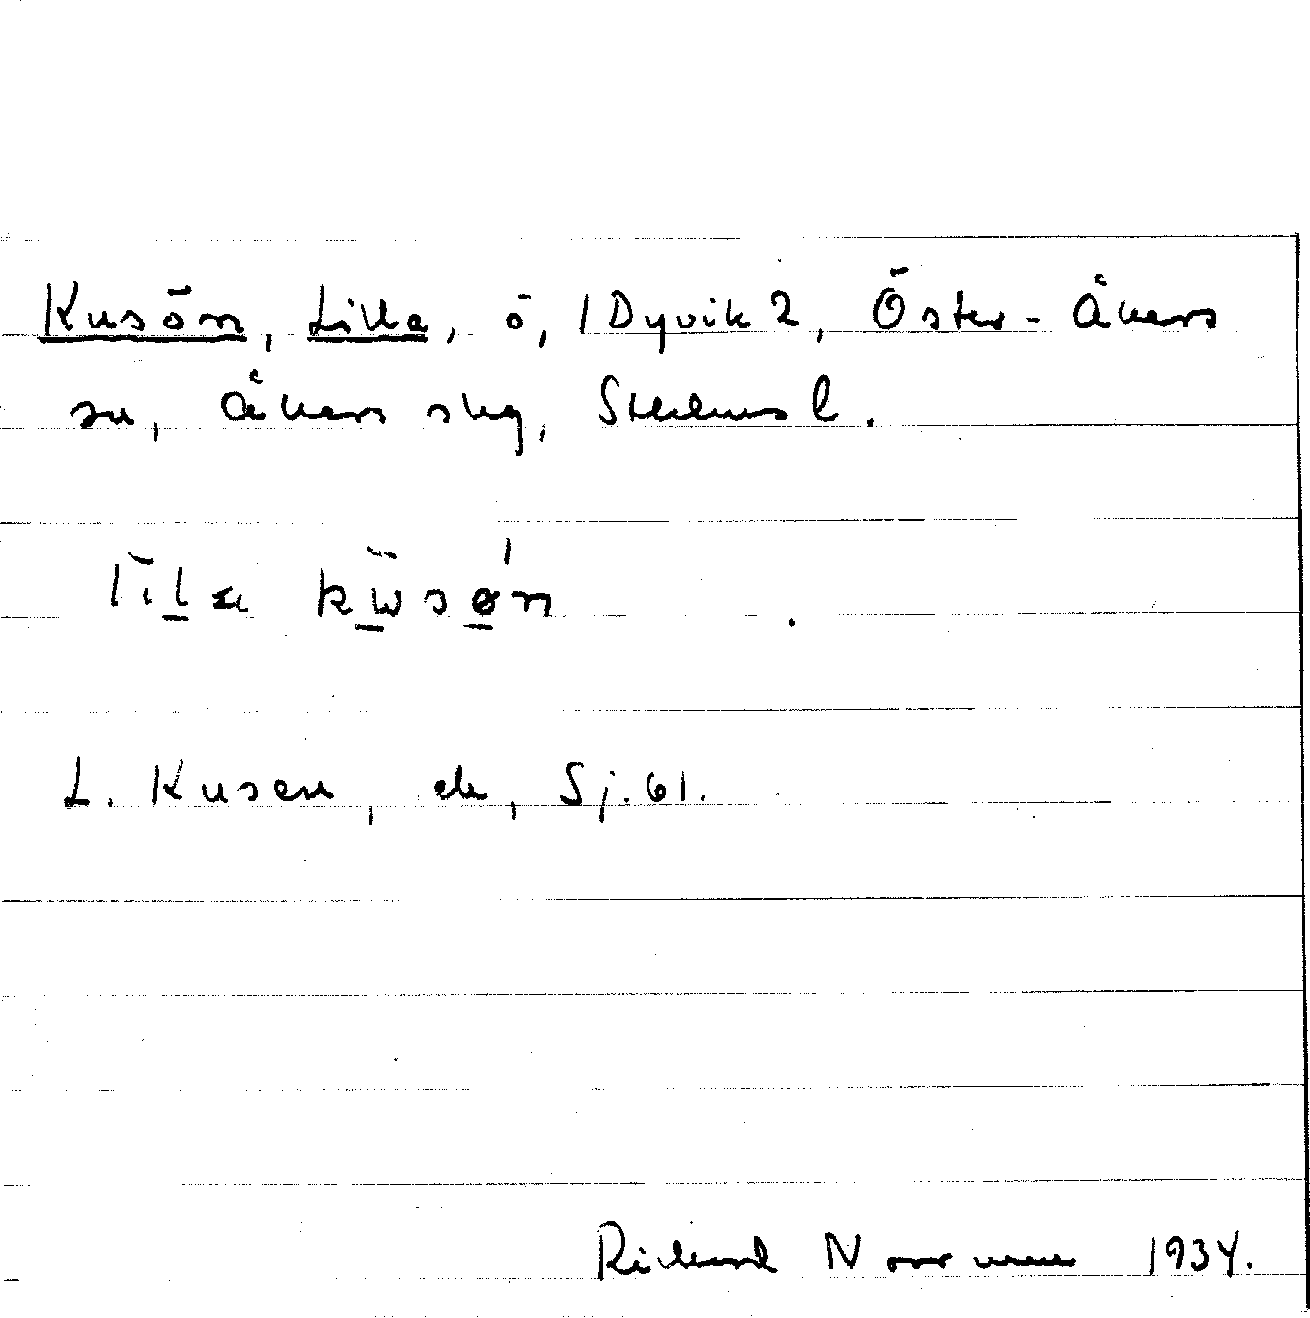 Kusön, Lilla, ö, 1 Dyvik 2, Öster-Åkers
sn, Åkers skg, Sthlms l.
lila kusøn
L. Kusen, dr, Sj. 61.
Richard Norrman 1934.